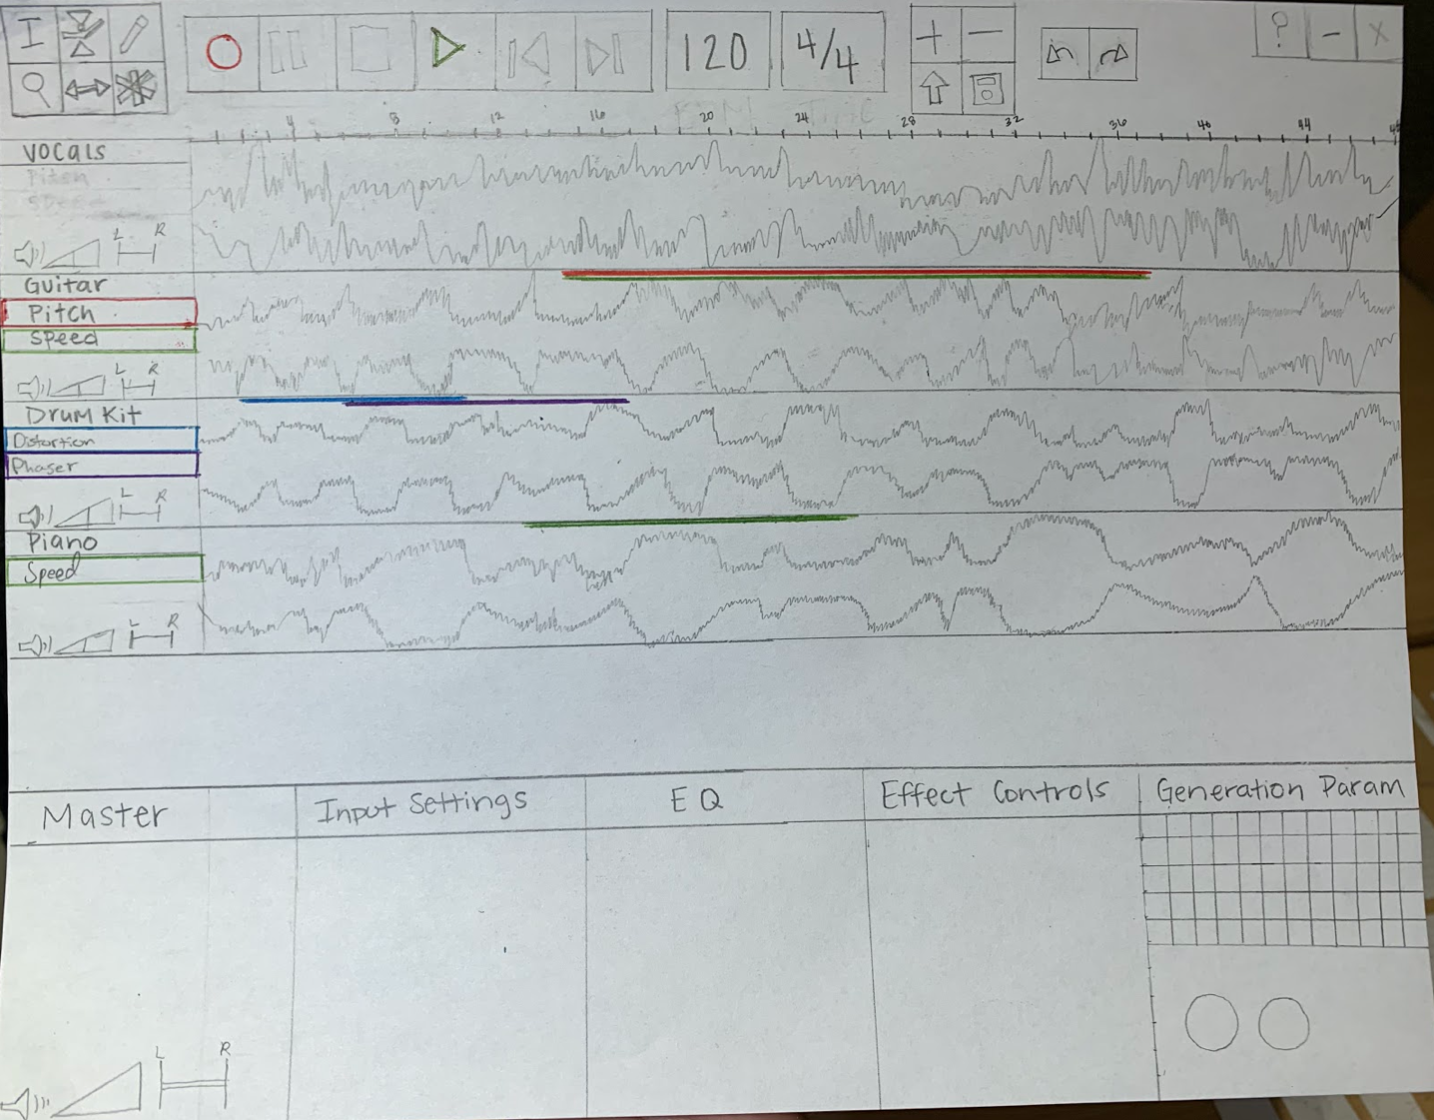 120 4/4
? - X
4 8 12 16 20 24 28 32 36 40 44 48
Vocals
Pitch
Speed
L R
Guitar
Pitch
Speed
L R
Drum Kit
Distortion
Phaser
L R
Piano
Speed
L R
Master Input Settings EQ Effect Controls Generation Param
L R